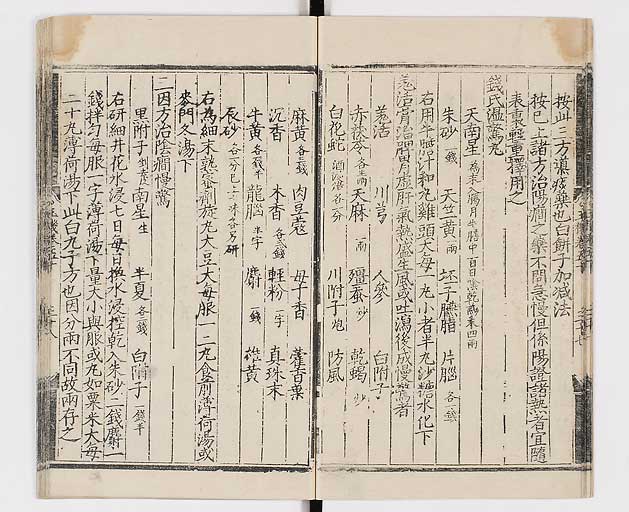 按此三方墜痰藥也白餅子加減法
按巳上諸方治陽癎之藥不問急慢但係陽證諸熱者宜隨
表裏輕重擇用之
錢氏溫驚丸
天南星 朱砂一錢 天竺黃一兩 坯子臙脂 片腦各一錢
右用牛膽汁和丸雞頭大每一丸小者半丸沙糖水化下
羌活膏治脾胃虛肝氣熱盛生風或吐瀉後成慢驚者
羌活 川芎 人參 白附子
赤茯苓各五兩 天麻一兩 殭蚕炒 乾蝎炒
白花蛇酒浸各一分 川附子炮 防風
麻黃各三錢 肉豆蔲 母丁香 藿香葉
沉香 木香各二錢 輕粉一字 真珠末
牛黃各一錢半 龍腦半字 麝一錢 雄黃
辰砂
右為細末熟蜜劑旋丸大豆大每服一二丸食前薄荷湯或
麥門冬湯下
三因方治陰癎慢驚
黑附子 南星生 半夏各二錢 白附子一錢半
右研細井花水浸七日每日換水浸控乾入朱砂二錢麝一
錢拌勻每服一字薄荷湯下量大小與服或丸如粟米大每
二十丸薄荷湯下此白丸子方也因分兩不同故兩存之